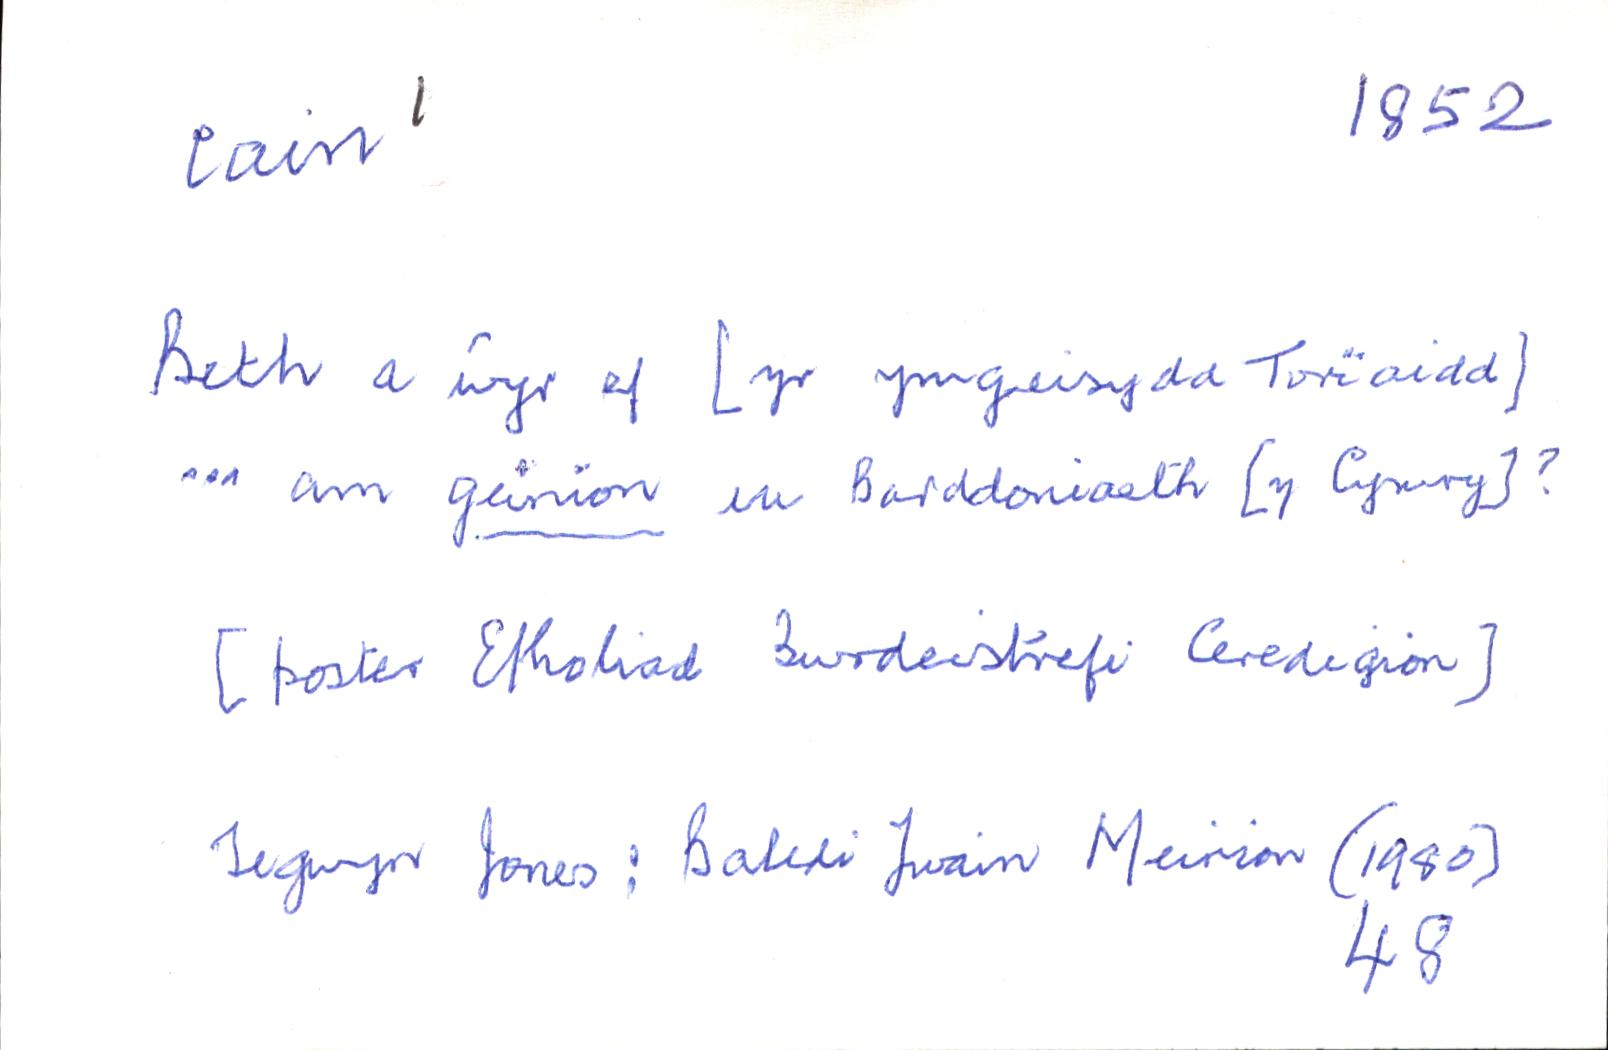 cain¹
1852
Beth a ŵyr ef [yr ymgeisydd Torïaidd]
... am geinion eu Barddoniaeth [y Cymry]?
[poster Etholiad Bwrdeistrefi Ceredigion]
Tegwyn Jones: Baledi Ywain Meirion (1980)
48